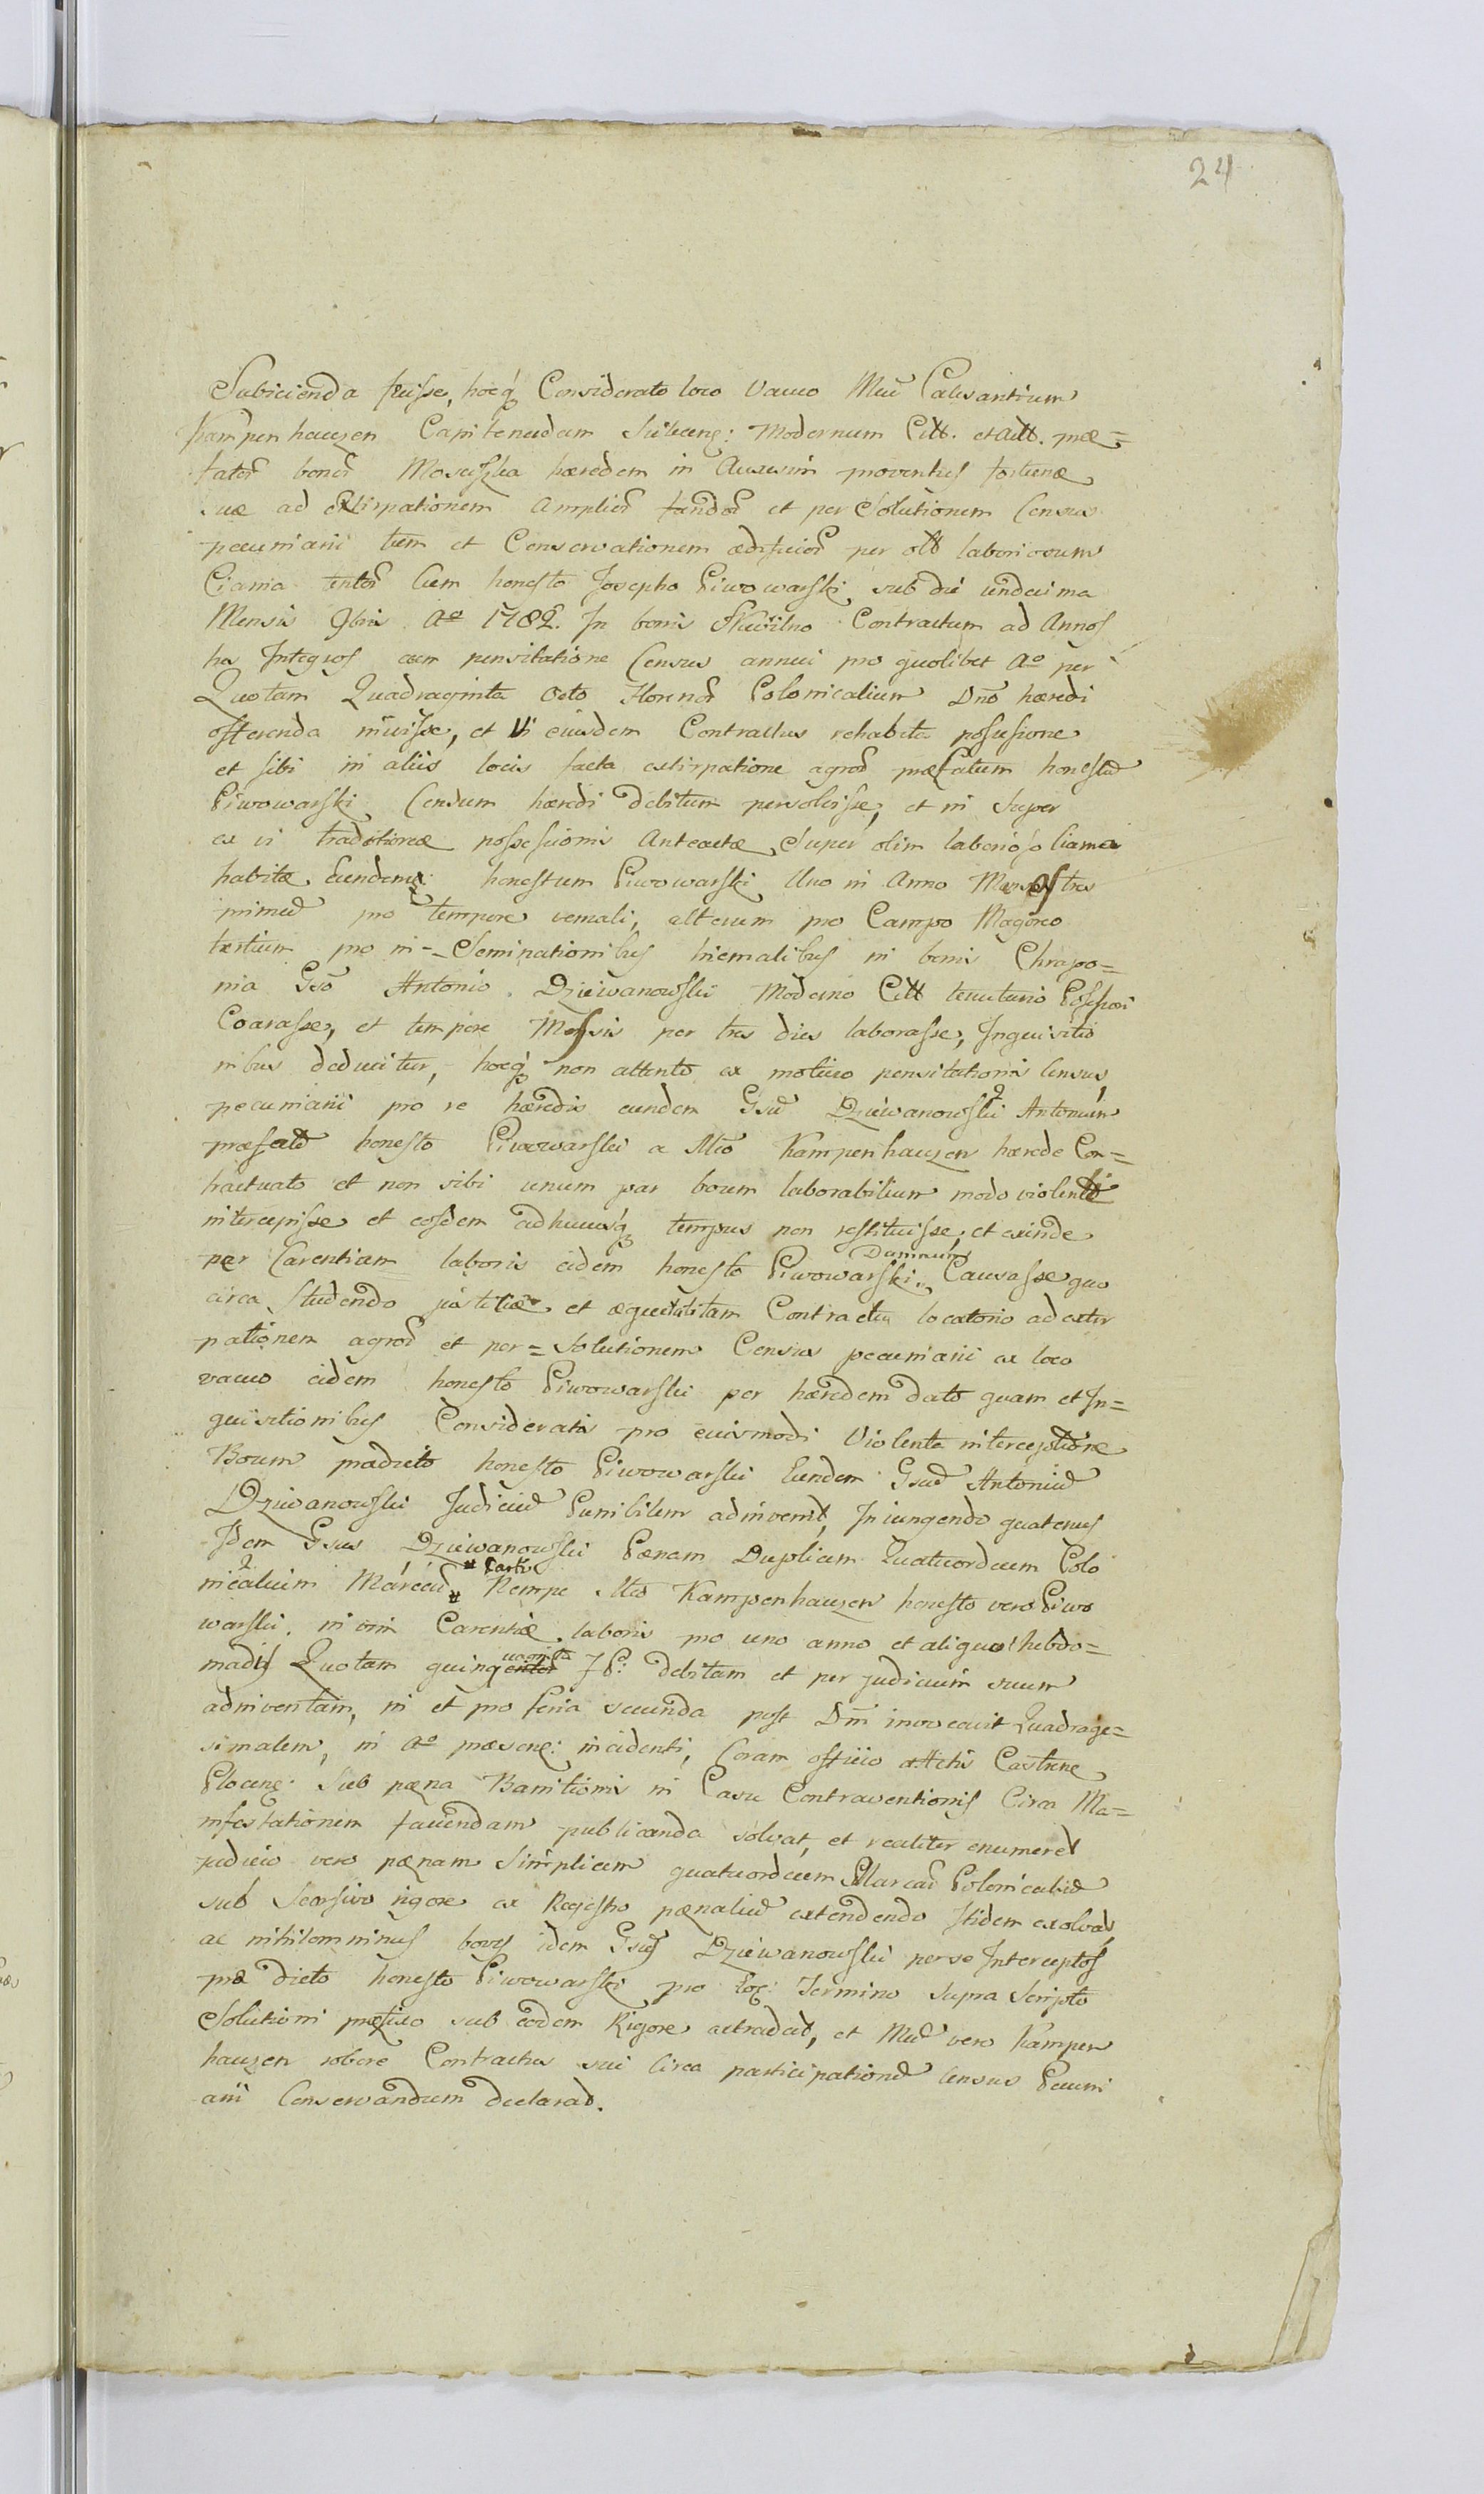 24
Subicienda fuisse, hocq Considerato loco Vacuo Mcum Causantium
Kampenhauzen Capitenudum Modernum Citt. et Actt. præ=
fator bonor hæredem in proventus fortunæ
suæ ad Extirpationem Amplior fundor et per Solutionem Census
pecuniarii tum et Conservationem ædificior per olt laboriosum
Ciama Cum honesto Josepho Piwowarski sub die undecima
Mensis 9bris Ao 1782. In bonis Contractum ad Annos
Integros cum pensitatione Census annui pro quolibet Ao per
Quotam Quadraginta Octo Florenor Polonicalium Dno hæredi
offerenda inivisse, et Vi eiusdem Contractus rehabita possessione
et sibi in aliis locis facta extirpatione agror præfatum honestum
Piwowarski Censum hæredi debitum persolvisse, et in super
ex vi possessionis Anteactæ Super olim laborioso Ciama
habitæ Eundemq honestum Piwowarski Uno in Anno tres
primum pro tempore vernali, alterum pro Campo
tertium pro in=Seminationibus hiemalibus in bonis Chrapo=
nia Gso Antonio Dziewanowski Moderno Citt tenutario Possessori
Coarasse, et tempore Messis per tres dies laborasse, Inquisitio
nibus deducitur, hocq non attento ex motivo pensitationis Census
pecuniarii pro re hæredis eundem Gsum Dziewanowski Antonium
præfato honesto Piwowarski a Mco Kampenhauzen hærede Con=
tractuato et non sibi unum par boum laborabilium modo violento
intercepisse et eosdem adhucusq tempus non restituisse, et exinde
per Carentiam laboris eidem honesto Piwowarski Damnum Causasse quo
circa Studendo justitiæ et æquitabilitam Contractu locatorio ad extir
pationem agror et per=Solutionem Census pecuniarii ex loco
vacuo eidem honesto Piwowarski per hæredem dato quam et In=
quisitionibus Consideratis pro eiusmodi Violenta interceptione
Boum prædicto honesto Piwowarski Eundem Gsum Antonium
Dziewanowski Judicium Punibilem adinvenit, Iniungendo quatenus
Idem Gsus Dziewanowski Pænam Duplicem Quatuordecim Polo
nicalium Marcar # # Parti Nempe Mco Kampenhauzen honesto vero Piwo
warski in vim Carentiæ laboris pro uno anno et aliquot hebdo=
madis Quotam fl P: debitam et per judicium suum
adinventam, in et pro feria secunda post Dnm invocavit Quadrage=
simalem, in Ao præsenq: incidenti, Coram officio Actis Castrens
Plocenq: Sub pæna Banitionis in Casu Contraventionis Circa Ma=
nifestationem faciendam publicanda solvat, et realiter enumeret
judicio vero pænam Simplicem quatuordecim Marcar Polonicalium
sub rigore ex Regestro pænalium extendendo Itidem exolvat
ac nihilominus boves idem Gsus Dziewanowski per se Interceptos
præ dicto honesto Piwowarski pro Termino Supra Scripto
Solutioni præfixo sub eodem Rigore extradat, et Mcum vero Kampen
hauzen robore Contractus sui Circa participationem Census Pecuni
arii Conservandum declarat.